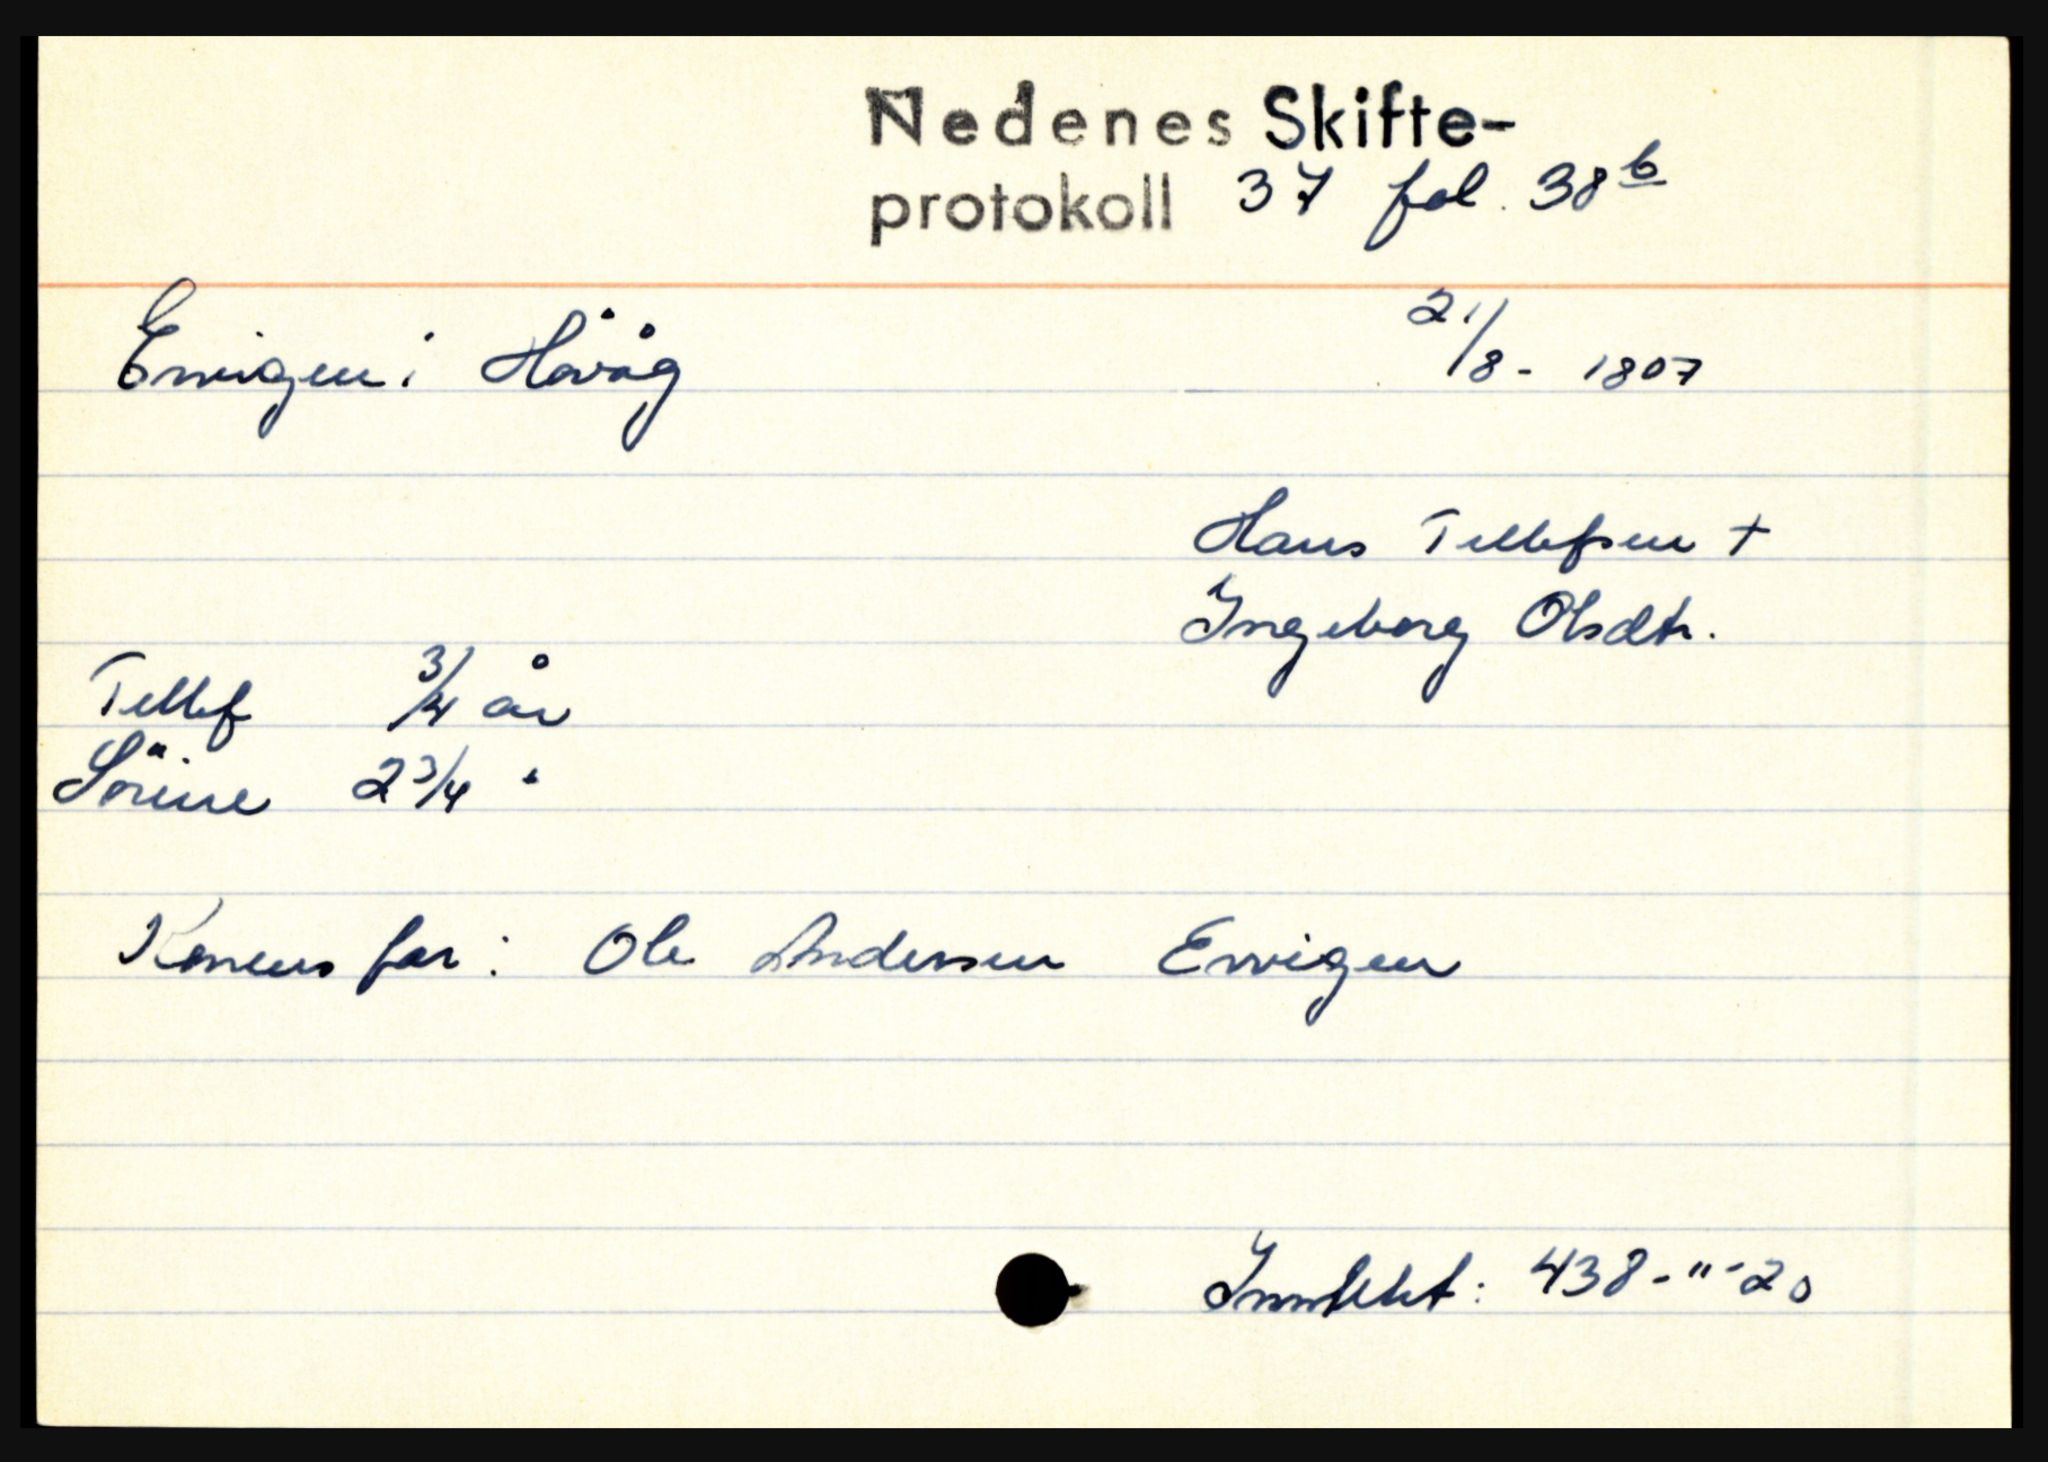 Nedenes Skifte-
protokoll 37 fol. 38b
Envigen i Høvåg 21/8 - 1807
Hans Tellefsen +
Ingeborg Olsdtr.
Tellef 3/4 år
Sörine 2 3/4 "
Konens far: Ole Andersen Envigen
: 438-"-20